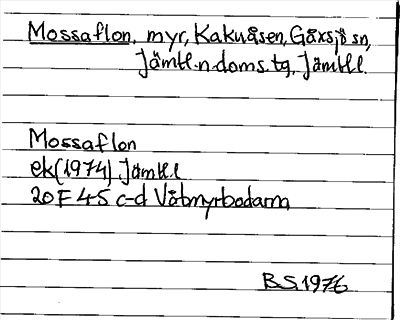 Mossaflon, myr, Kakuåsen, Gåxsjö sn,
Jämtl.n.doms.tg, Jämtl.l.
Mossaflon
ek (1974) Jämtl.l
20 F 4-5 c-d Våtmyrbodarna
B.S. 1976